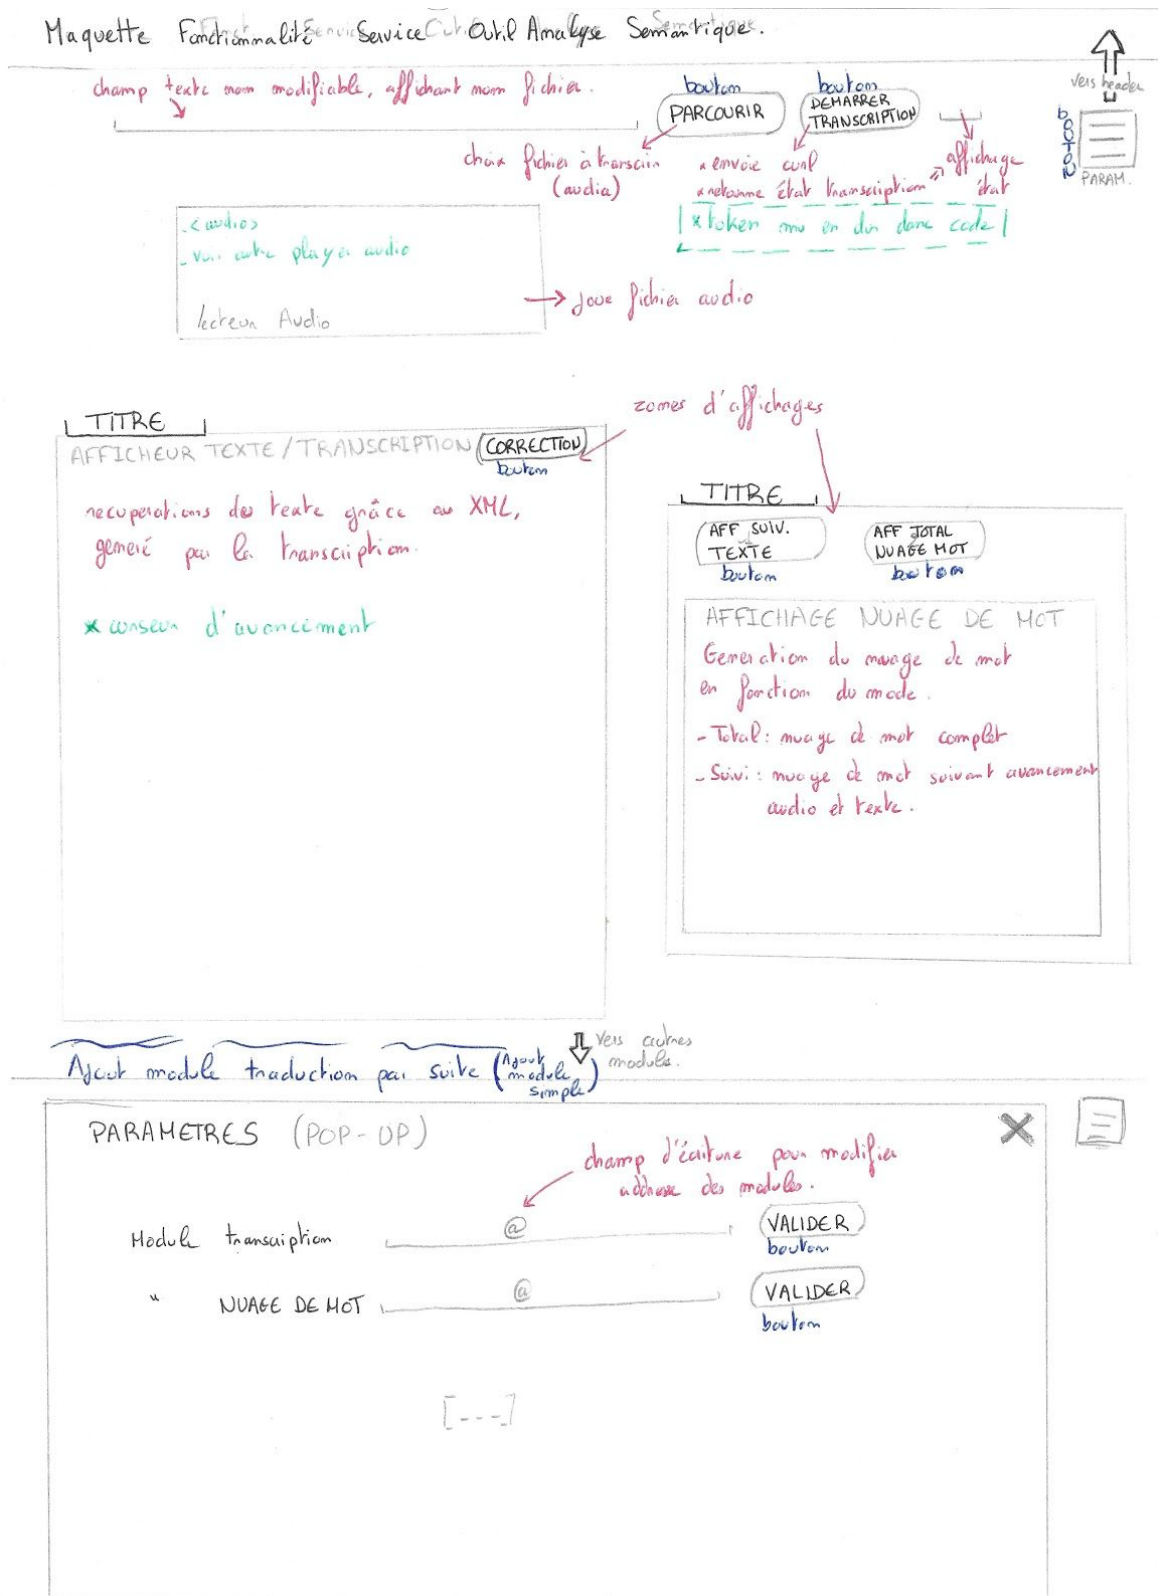 Maquette Fonctionnalité Service Outil Analyse Semantique.
vers header
champ texte non modifiable, affichant nom fichier.
bouton
bouton
PARCOURIR
DEMARRER
TRANSCRIPTION
BOUTON
PARAM.
choix fichier à transcrire
(audio)
* envoie curl
* retourne état transcription
affichage
état
* token mis en dur dans code
- <audio>
- voir autre player audio
lecteur Audio
joue fichier audio
zones d'affichages
TITRE
AFFICHEUR TEXTE / TRANSCRIPTION
CORRECTION
bouton
recuperations des texte grâce au XML,
generé par la transcription.
* curseur d'avancement
TITRE
AFF SUIV.
TEXTE
bouton
AFF TOTAL
NUAGE MOT
bouton
AFFICHAGE NUAGE DE MOT
Generation du nuage de mot
en fonction du mode.
- Total : nuage de mot complet
- Suivi : nuage de mot suivant avancement
audio et texte.
Vers autres
modules.
Ajout module traduction par suite (Ajout
module
simple)
PARAMETRES (POP-UP)
champ d'écriture pour modifier
addresse des modules.
Module transcription @ VALIDER
bouton
" NUAGE DE MOT @ VALIDER
bouton
[---]